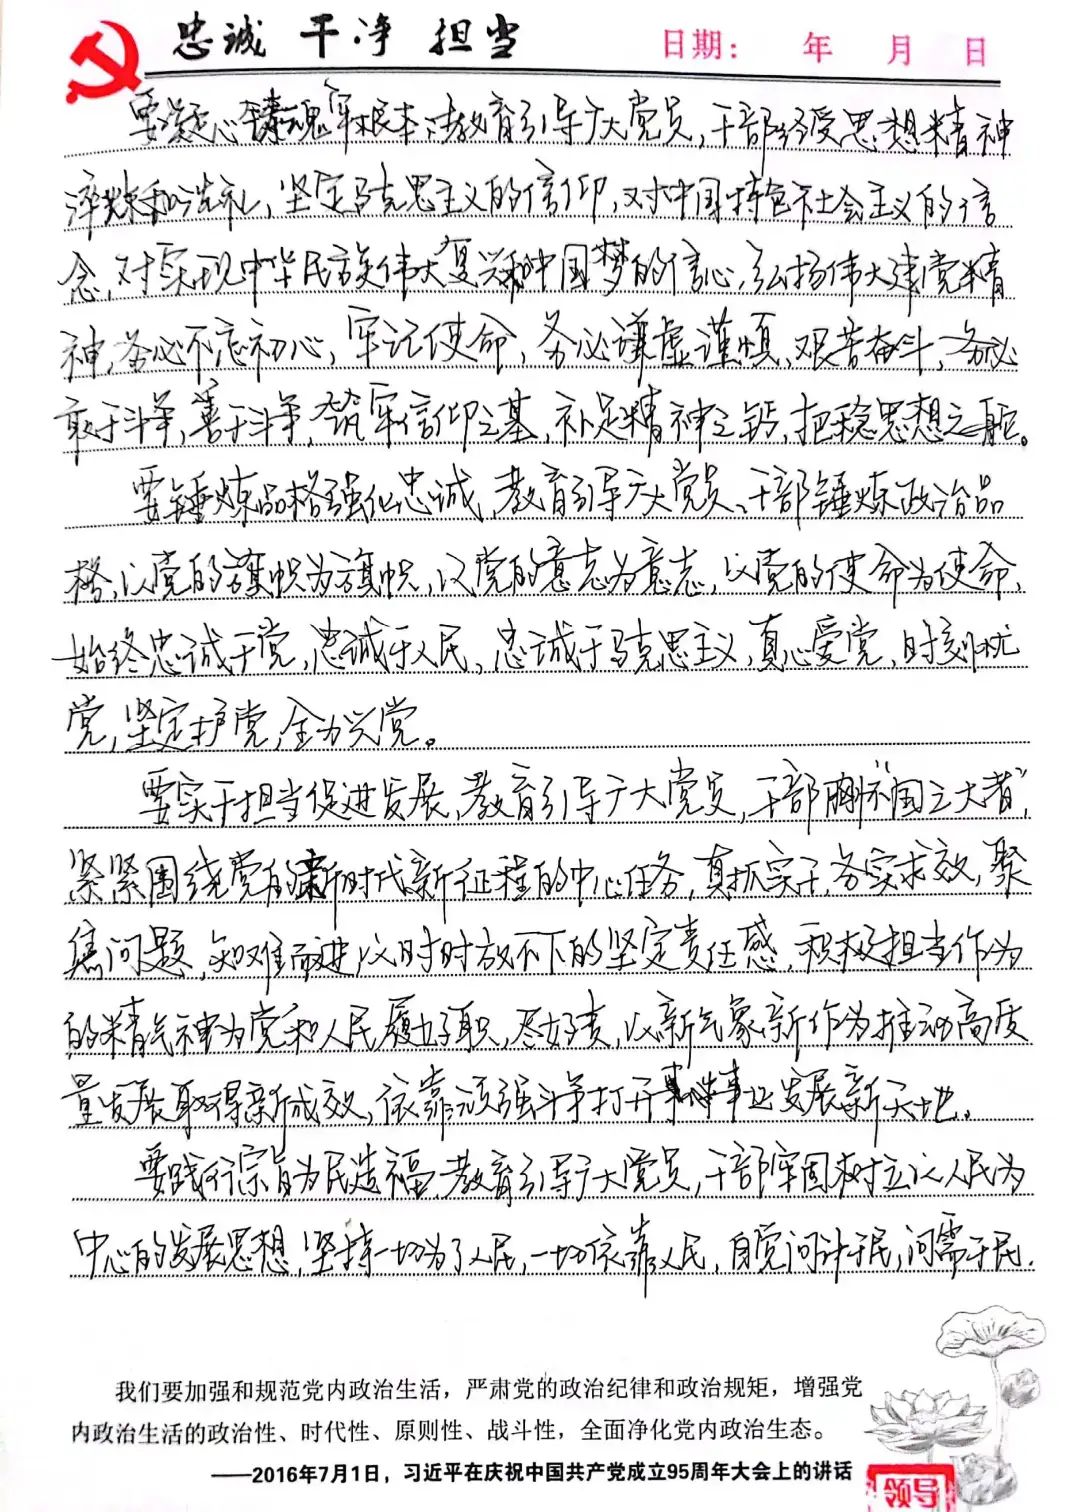 忠诚 干净 担当
日期: 年 月 日
要凝心铸魂牢根本,教育引导广大党员,干部经受思想精神
淬炼和洗礼,坚定马克思主义的信仰,对中国特色社会主义的信
念,对实现中华民族伟大复兴和中国梦的信心,弘扬伟大建党精
神,务必不忘初心,牢记使命,务必谦虚谨慎,艰苦奋斗,务必
敢于斗争,善于斗争,筑牢信仰之基,补足精神之钙,把稳思想之舵。
要锤炼品格强化忠诚,教育引导广大党员、干部锤炼政治品
格,以党的旗帜为旗帜,以党的意志为意志,以党的使命为使命,
始终忠诚于党,忠诚于人民,忠诚于马克思主义,真心爱党,时刻忧
党,坚定护党,全力兴党。
要实干担当促进发展,教育引导广大党员,干部胸怀“国之大者”,
紧紧围绕党的新时代新征程的中心任务,真抓实干,务实求效,聚
焦问题,知难而进,以时时放不下的坚定责任感,积极担当作为
的精气神为党和人民履好职,尽好责,以新气象新作为推动高质
量发展取得新成效,依靠顽强斗争打开事业发展新天地。
要践行宗旨为民造福,教育引导广大党员,干部牢固树立以人民为
中心的发展思想,坚持一切为了人民,一切依靠人民,自觉问计于民,问需于民.
我们要加强和规范党内政治生活，严肃党的政治纪律和政治规矩，增强党
内政治生活的政治性、时代性、原则性、战斗性，全面净化党内政治生态。
——2016年7月1日，习近平在庆祝中国共产党成立95周年大会上的讲话
领导